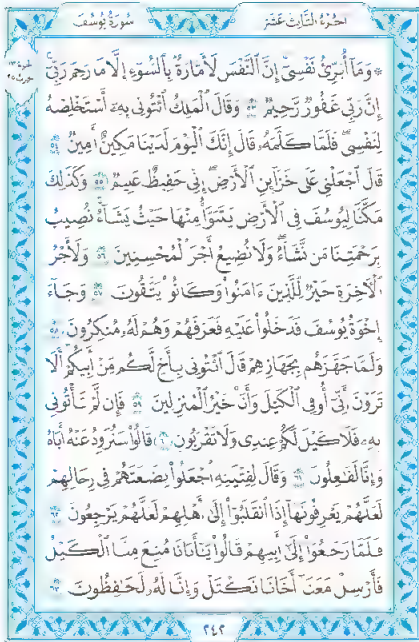 سُورَةُ يُوسُفَ
الجُزءُ الثَّالِثَ عَشَرَ
۞ وَمَآ أُبَرِّئُ نَفْسِيٓ إِنَّ ٱلنَّفْسَ لَأَمَّارَةُۢ بِٱلسُّوٓءِ إِلَّا مَا رَحِمَ رَبِّيٓ
إِنَّ رَبِّي غَفُورٞ رَّحِيمٞ ٥٣ وَقَالَ ٱلۡمَلِكُ ٱئۡتُونِي بِهِۦٓ أَسۡتَخۡلِصۡهُ
لِنَفۡسِيۖ فَلَمَّا كَلَّمَهُۥ قَالَ إِنَّكَ ٱلۡيَوۡمَ لَدَيۡنَا مَكِينٌ أَمِينٞ ٥٤
قَالَ ٱجۡعَلۡنِي عَلَىٰ خَزَآئِنِ ٱلۡأَرۡضِۖ إِنِّي حَفِيظٌ عَلِيمٞ ٥٥ وَكَذَٰلِكَ
مَكَّنَّا لِيُوسُفَ فِي ٱلۡأَرۡضِ يَتَبَوَّأُ مِنۡهَا حَيۡثُ يَشَآءُۚ نُصِيبُ
بِرَحۡمَتِنَا مَن نَّشَآءُۖ وَلَا نُضِيعُ أَجۡرَ ٱلۡمُحۡسِنِينَ ٥٦ وَلَأَجۡرُ
ٱلۡأٓخِرَةِ خَيۡرٞ لِّلَّذِينَ ءَامَنُواْ وَكَانُواْ يَتَّقُونَ ٥٧ وَجَآءَ
إِخۡوَةُ يُوسُفَ فَدَخَلُواْ عَلَيۡهِ فَعَرَفَهُمۡ وَهُمۡ لَهُۥ مُنكِرُونَ ٥٨
وَلَمَّا جَهَّزَهُم بِجَهَازِهِمۡ قَالَ ٱئۡتُونِي بِأَخٖ لَّكُم مِّنۡ أَبِيكُمۡۚ أَلَا
تَرَوۡنَ أَنِّيٓ أُوفِي ٱلۡكَيۡلَ وَأَنَا۠ خَيۡرُ ٱلۡمُنزِلِينَ ٥٩ فَإِن لَّمۡ تَأۡتُونِي
بِهِۦ فَلَا كَيۡلَ لَكُمۡ عِندِي وَلَا تَقۡرَبُونِ ٦٠ قَالُواْ سَنُرَٰوِدُ عَنۡهُ أَبَاهُ
وَإِنَّا لَفَٰعِلُونَ ٦١ وَقَالَ لِفِتۡيَٰنِهِ ٱجۡعَلُواْ بِضَٰعَتَهُمۡ فِي رِحَالِهِمۡ
لَعَلَّهُمۡ يَعۡرِفُونَهَآ إِذَا ٱنقَلَبُوٓاْ إِلَىٰٓ أَهۡلِهِمۡ لَعَلَّهُمۡ يَرۡجِعُونَ ٦٢
فَلَمَّا رَجَعُوٓاْ إِلَىٰٓ أَبِيهِمۡ قَالُواْ يَٰٓأَبَانَا مُنِعَ مِنَّا ٱلۡكَيۡلُ
فَأَرۡسِلۡ مَعَنَآ أَخَانَا نَكۡتَلۡ وَإِنَّا لَهُۥ لَحَٰفِظُونَ ٦٣
٢٤٢